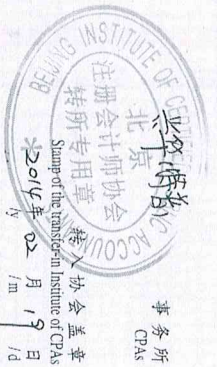 事务所
CPAs
BEIJING INSTITUTE OF CERTIFIED ACCOUNTANTS
北京
注册会计师协会
转所专用章
转入协会盖章
Stamp of the transfer-in Institute of CPAs
2014年 02 月 19 日
/y /m /d